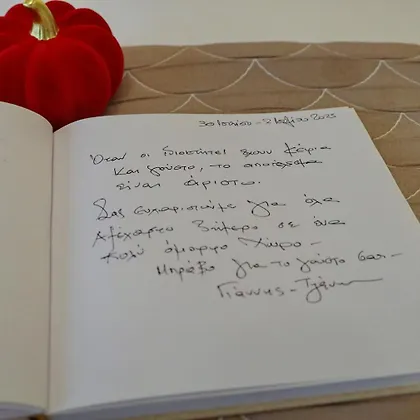 30 Ιουνίου - 2 Ιουλίου 2025
Όταν οι ιδιοκτήτες έχουν μεράκι
και γούστο, το αποτέλεσμα
είναι άριστο.
Σας ευχαριστούμε για όλα
Αξέχαστο διήμερο σε ένα
πολύ όμορφο χώρο -
Μπράβο για το γούστο σας -
Γιάννης -